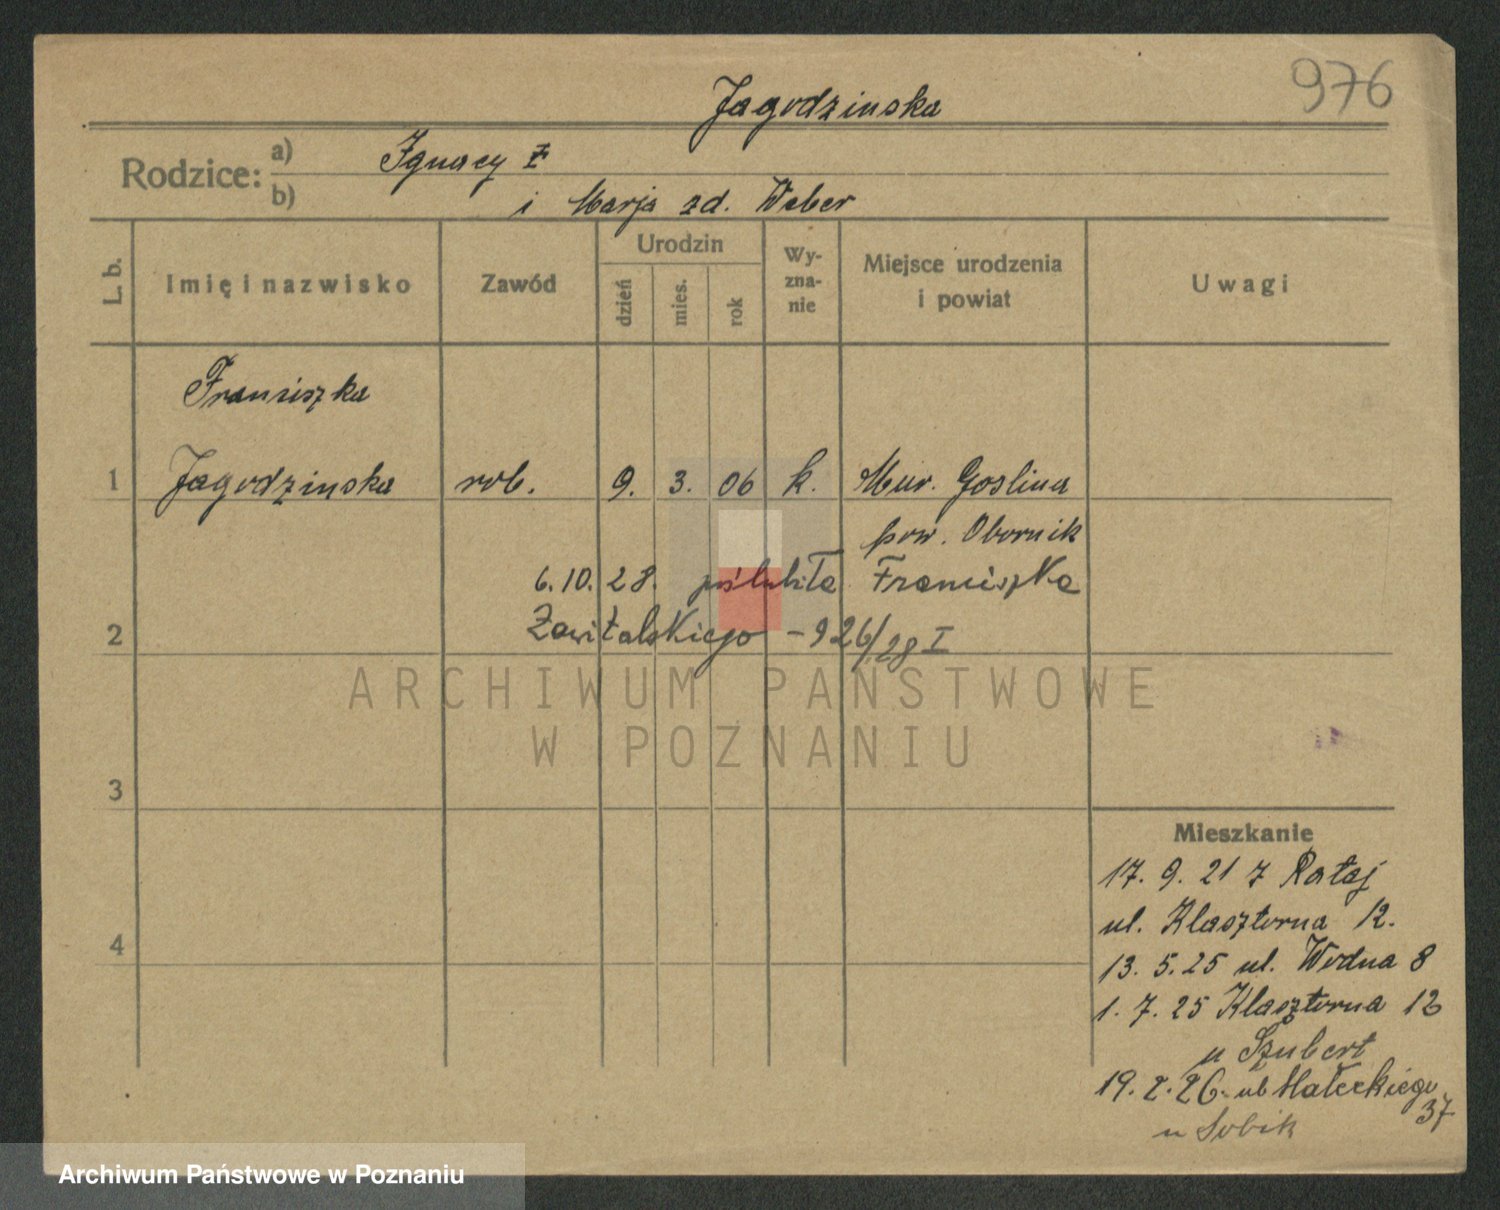 976
Jagodzinska
Rodzice:
a) Ignacy Ŧ
b) i Marja zd. Weber
L. b.
Imię i nazwisko
Zawód
Urodzin
dzień
mies.
rok
Wy-
zna-
nie
Miejsce urodzenia
i powiat
Uwagi
Franciszka
1 Jagodzinska rob. 9. 3. 06 k. Mur. Goslina
pow. Obornik
6.10.28. poślubiła Franciszka
2 Zawitalskiego - 926/28 I
ARCHIWUM PAŃSTWOWE
W POZNANIU
3
4
Mieszkanie
17. 9. 21 z Rataj
ul. Klasztorna 12.
13. 5. 25 ul. Wodna 8
1. 7. 25 Klasztorna 12
u Szubert
19. 2. 26. ul Małeckiego
37
u Sobik
Archiwum Państwowe w Poznaniu